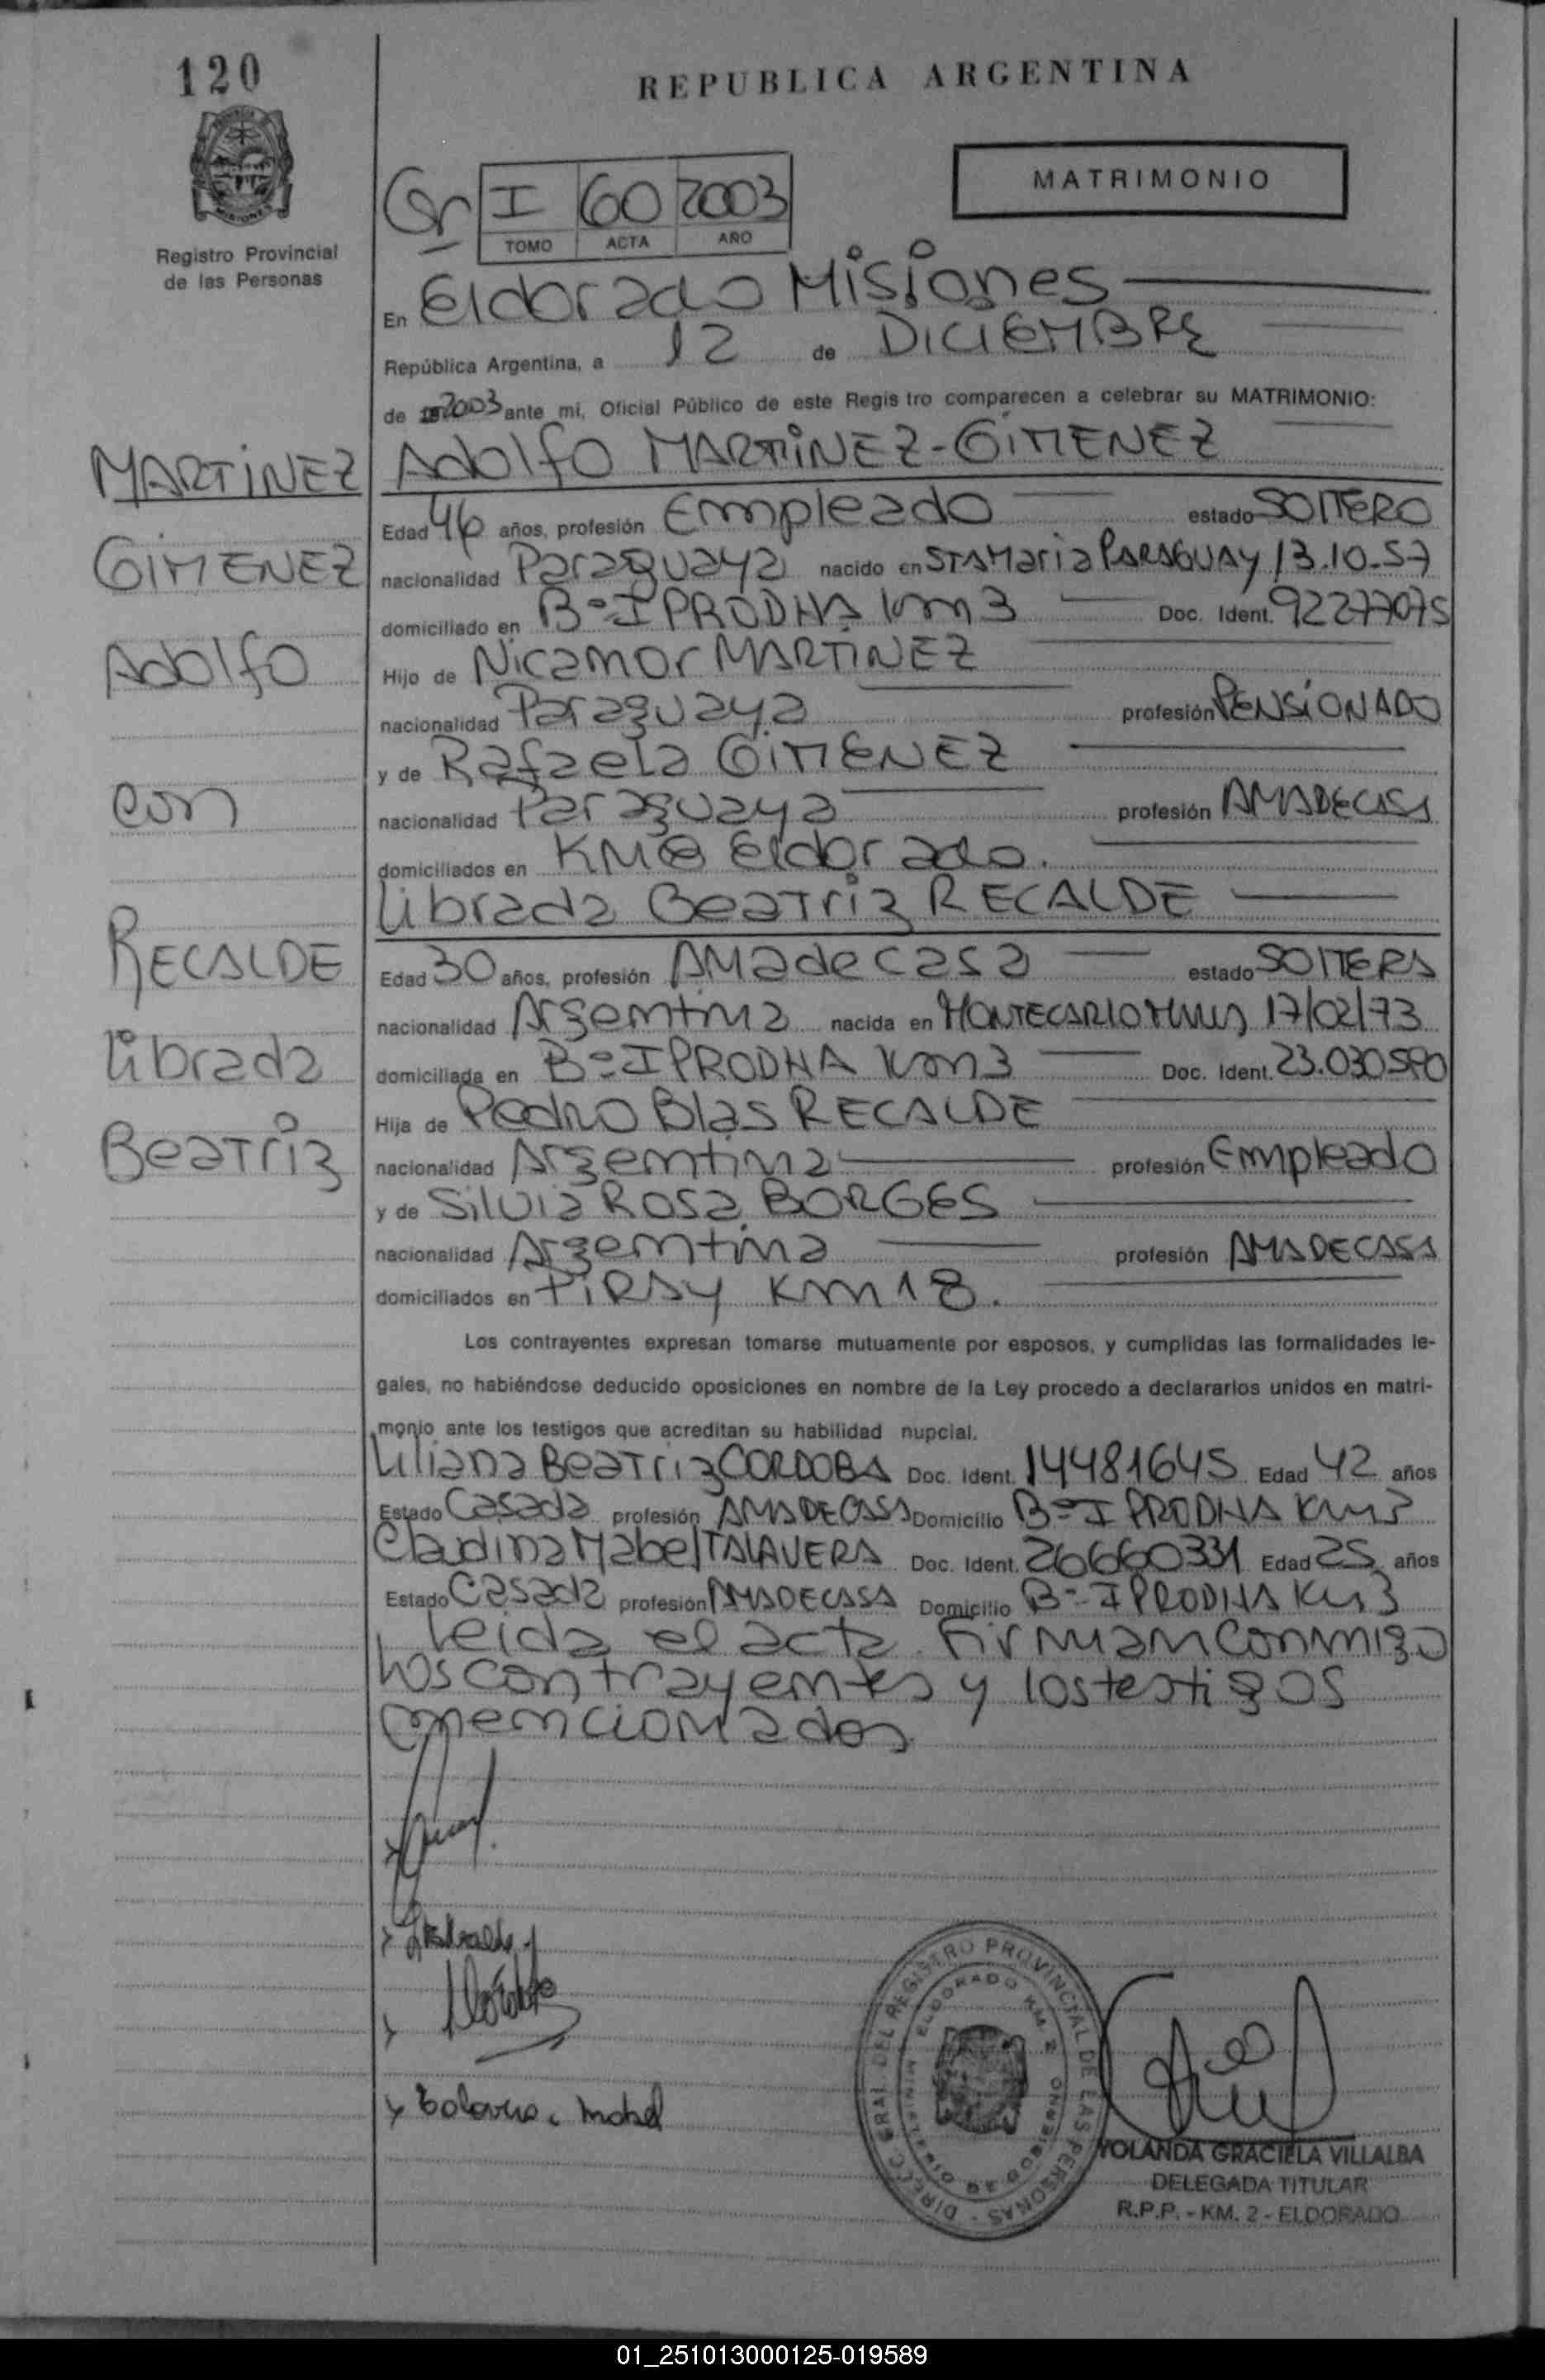 120
REPUBLICA ARGENTINA
PROVINCIA DE MISIONES
Registro Provincial
de las Personas
MATRIMONIO
I 60 2003
TOMO ACTA AÑO
En Eldorado Misiones
República Argentina, a 12 de DICIEMBRE
de 2003 ante mi, Oficial Público de este Regis tro comparecen a celebrar su MATRIMONIO:
MARTINEZ
GIMENEZ
Adolfo
con
RECALDE
librada
Beatriz
Adolfo MARTINEZ-GIMENEZ
Edad 46 años, profesión Empleado estado SOLTERO
nacionalidad Paraguaya nacido en STAMaria PARAGUAY 13.10.57
domiciliado en Bº IPRODHA Km3 Doc. Ident. 92277075
Hijo de Nicamor MARTINEZ
nacionalidad Paraguaya profesión PENSIONADO
y de Rafaela GIMENEZ
nacionalidad Paraguaya profesión AMADECASA
domiciliados en KM8 Eldorado.
Librada Beatriz RECALDE
Edad 30 años, profesión AMadecasa estado SOLTERA
nacionalidad Argentina nacida en MONTECARLO 17/02/73
domiciliada en Bº IPRODHA Km3 Doc. Ident. 23.030.590
Hija de Pedro Blas RECALDE
nacionalidad Argentina profesión Empleado
y de Silvia Rosa BORGES
nacionalidad Argentina profesión AMADECASA
domiciliados en PIRAY Km 18.
Los contrayentes expresan tomarse mutuamente por esposos, y cumplidas las formalidades le-
gales, no habiéndose deducido oposiciones en nombre de la Ley procedo a declararlos unidos en matri-
monio ante los testigos que acreditan su habilidad nupcial.
Liliana Beatriz CORDOBA Doc. Ident. 14481645 Edad 42 años
Estado Casada profesión AMADECASA Domicilio Bº IPRODHA Km3
Claudina Mabel TALAVERA Doc. Ident. 26660331 Edad 25 años
Estado Casada profesión AMADECASA Domicilio Bº IPRODHA Km3
Leida el acta firman conmigo
los contrayentes y los testigos
mencionados
Talavera Mabel
DIRECC. GRAL. DEL REGISTRO PROVINCIAL DE LAS PERSONAS
ELDORADO KM. 2
MINISTERIO DE GOBIERNO
YOLANDA GRACIELA VILLALBA
DELEGADA TITULAR
R.P.P. - KM. 2 - ELDORADO
01_251013000125-019589